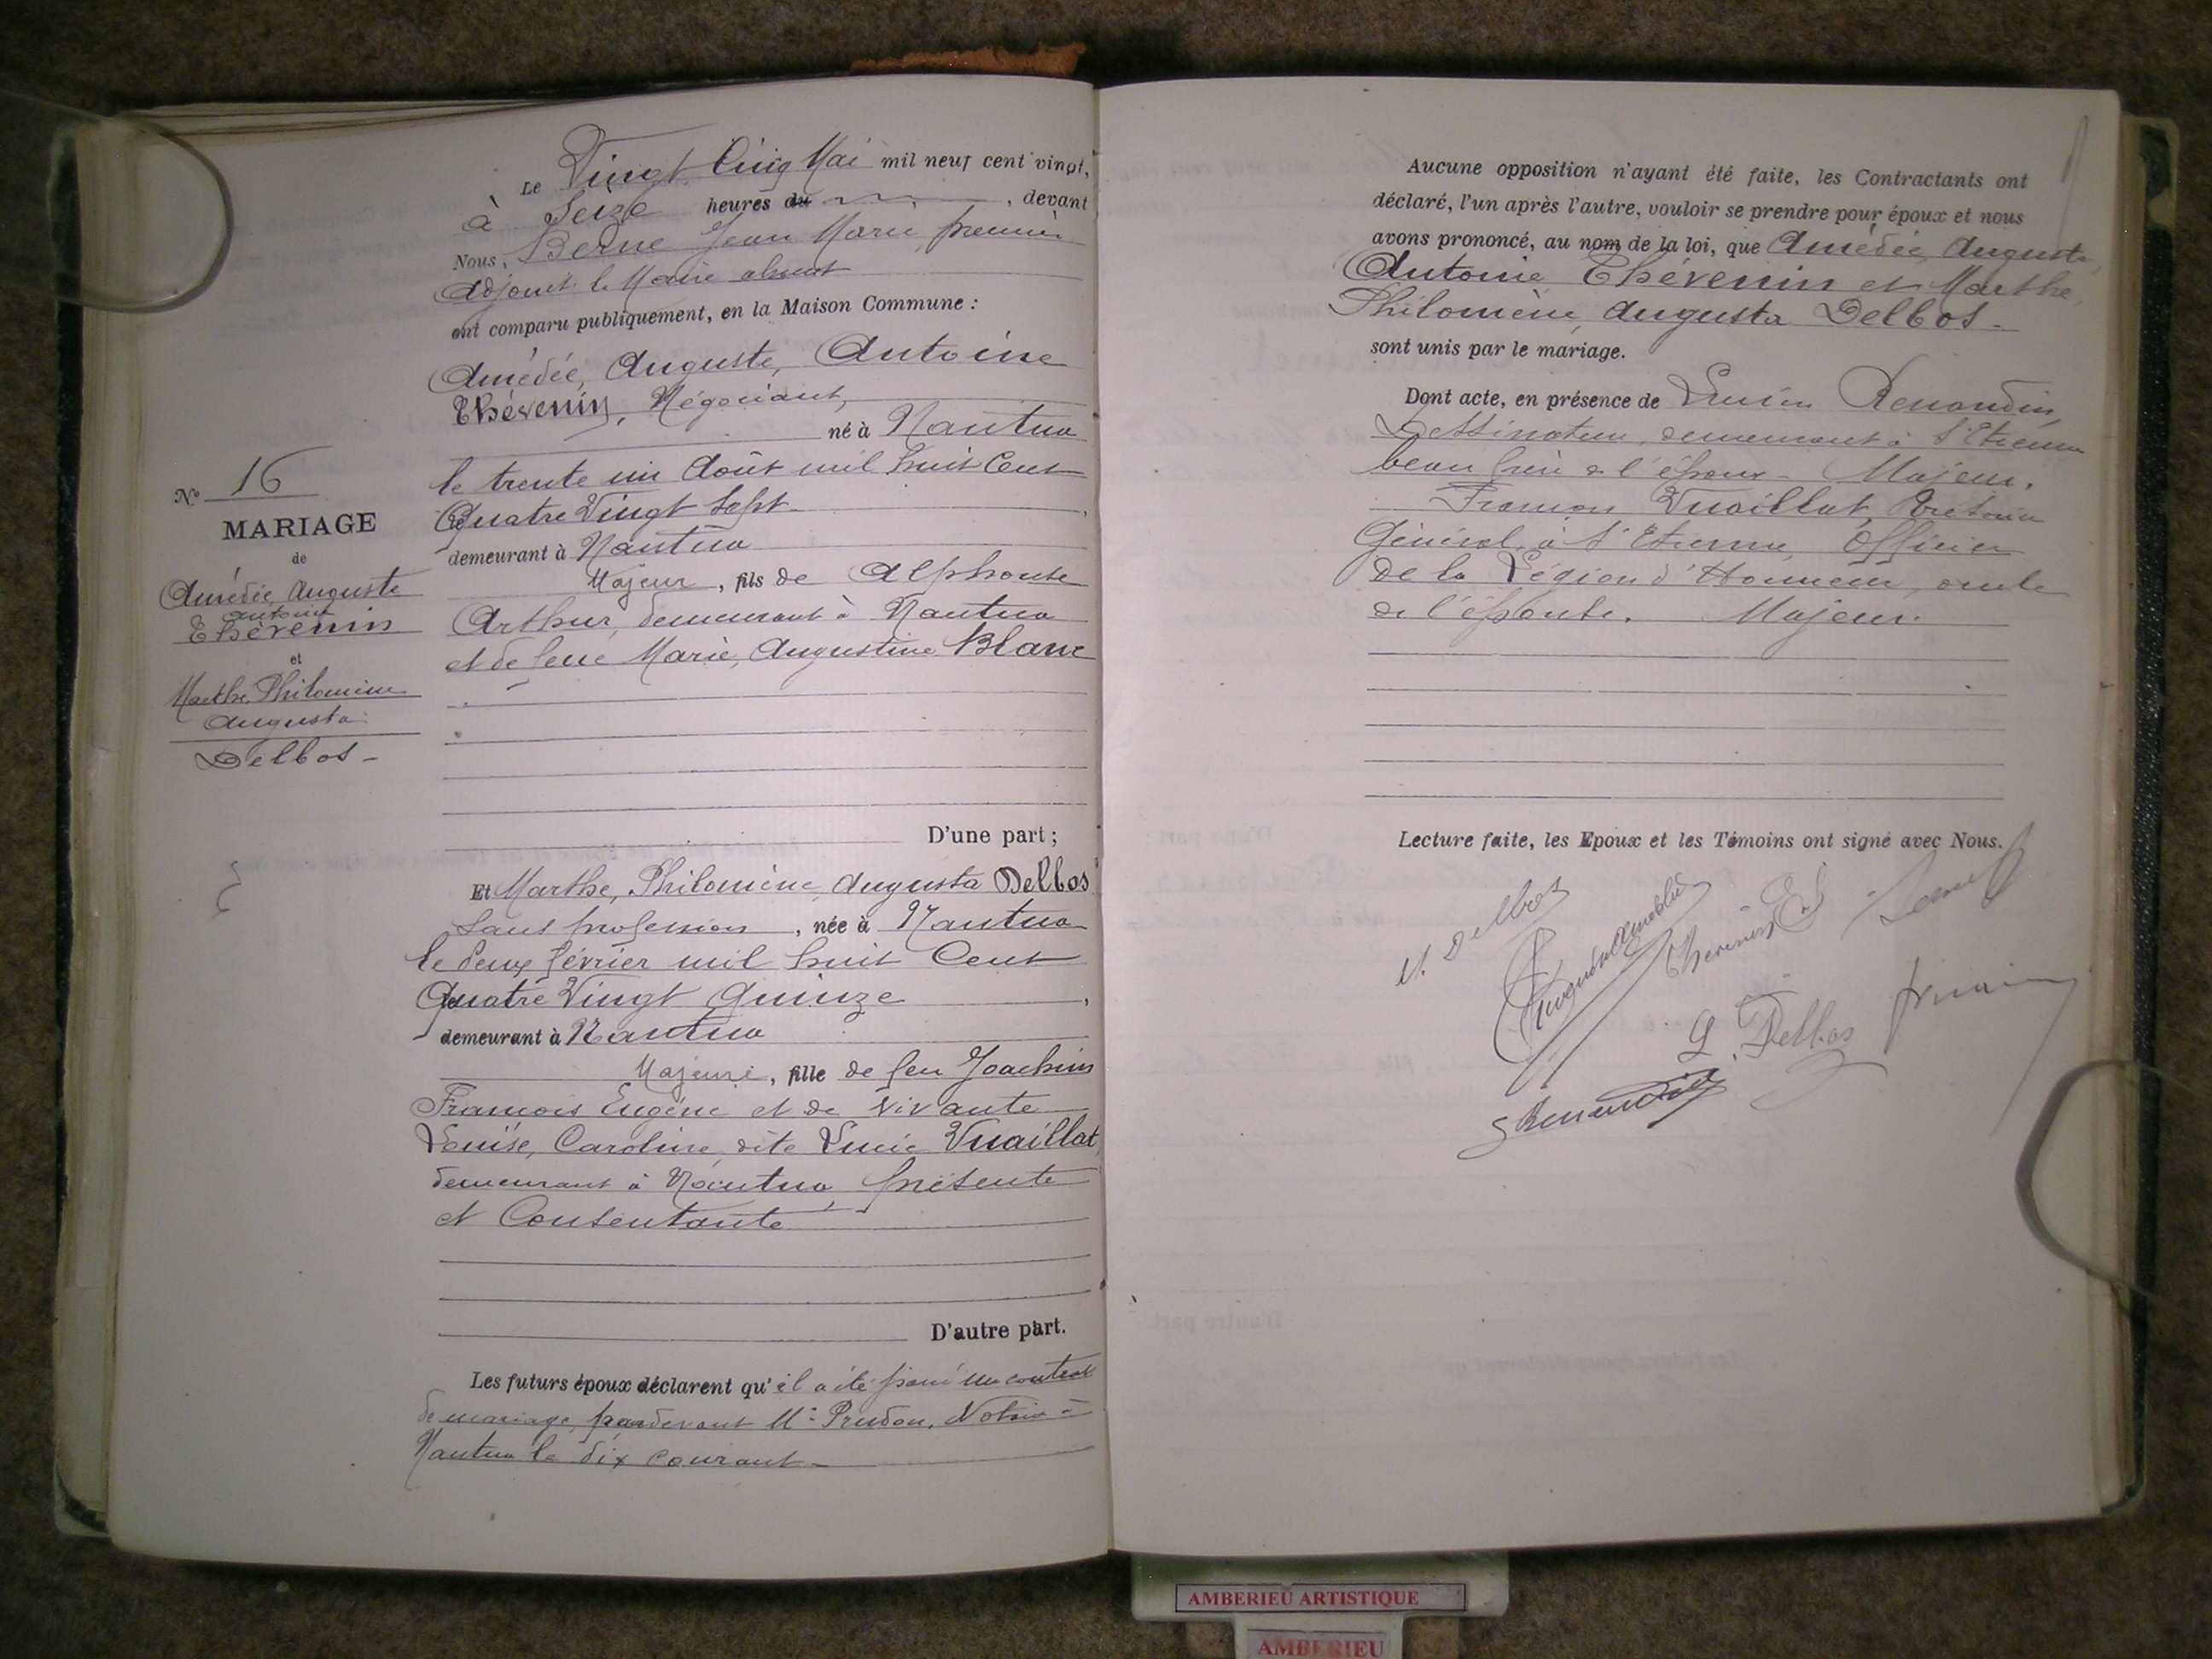 Le Vingt Cinq Mai mil neuf cent vingt,
à Seize heures du , devant
Nous, Berne Jean Marie, premier
Adjoint le Maire absent
ont comparu publiquement, en la Maison Commune :
Amédée, Auguste, Antoine
Thévenin, Négociant,
né à Nantua
le trente un Août mil huit Cent
Quatre Vingt Sept
demeurant à Nantua
Majeur, fils de Alphonse
Arthur, demeurant à Nantua
et de feue Marie, Augustine Blanc
D'une part ;
Et Marthe, Philomène, Augusta Delbos
Sans profession, née à Nantua
le deux février mil huit Cent
Quatre Vingt Quinze,
demeurant à Nantua
Majeure, fille de feu Joachim
François Eugène et de Vivante
Louise, Caroline, dite Lucie Vuaillat,
demeurant à Nantua, présente
et Consentante
D'autre part.
Les futurs époux déclarent qu'il a été passé un contrat
de mariage, pardevant Me Prudon, Notaire à
Nantua le dix courant
No 16
MARIAGE
de
Amédée, Auguste
Antoine
Thévenin
et
Marthe, Philomène
Augusta
Delbos
Aucune opposition n'ayant été faite, les Contractants ont
déclaré, l'un après l'autre, vouloir se prendre pour époux et nous
avons prononcé, au nom de la loi, que Amédée, Auguste,
Antoine Thévenin et Marthe,
Philomène, Augusta Delbos
sont unis par le mariage.
Dont acte, en présence de Lucien Renaudin,
Dessinateur, demeurant à St Etienne
beau frère de l'époux - Majeur.
François Vuaillat, Trésorier
Général, à St Etienne, Officier
de la Légion d'Honneur, oncle
de l'épouse. Majeur.
Lecture faite, les Epoux et les Témoins ont signé avec Nous.
M. Delbos
Thévenin
L. Delbos
Renaudin
AMBERIEU ARTISTIQUE
AMBERIEU